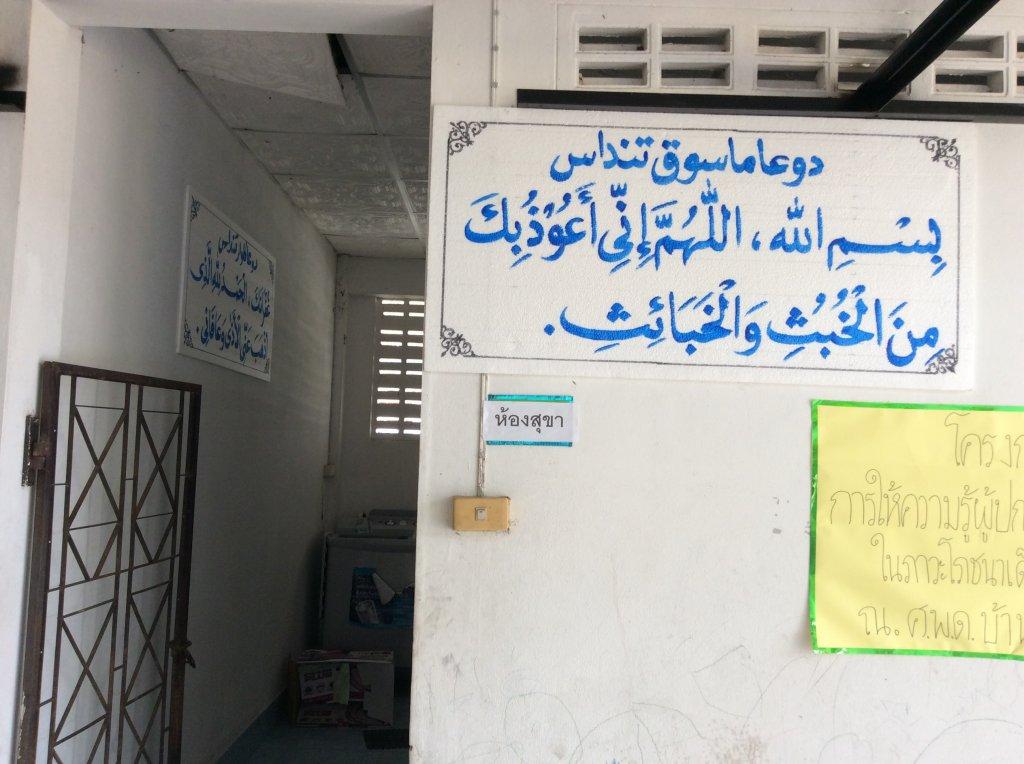 دوعا ماسوق تنداس
بِسْمِ الله، اللّٰهُمَّ إِنِّي أَعُوْذُ بِكَ
مِنَ الْخُبُثِ وَالْخَبَائِثِ.
دوعا كلوار تنداس
غُفْرَانَكَ، الْحَمْدُ لِلّٰهِ الَّذِي
أَذْهَبَ عَنِّي الْأَذَى وَعَافَانِي.
ห้องสุขา
โครงก
การให้ความรู้ผู้ปก
ในภาวะโภชนาเด็
ณ. ศ.พ.ด. บ้าน